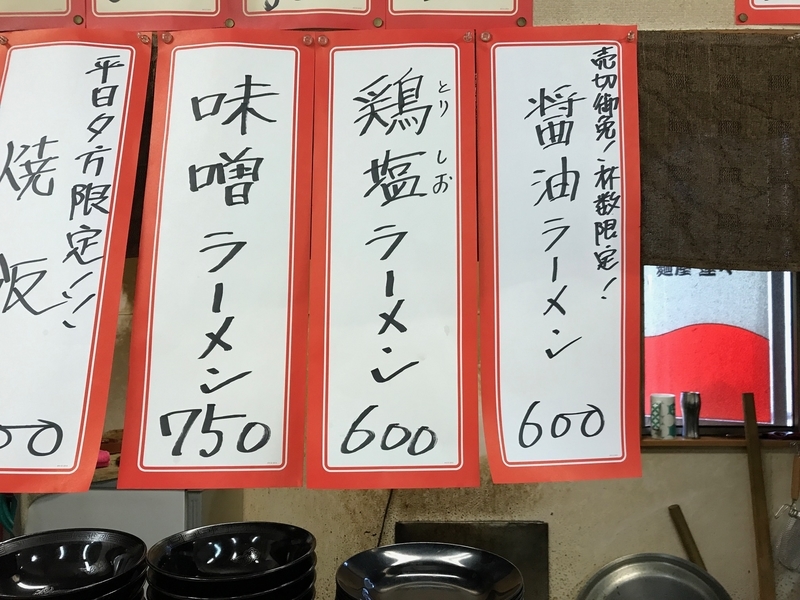 売切御免!杯数限定!
醤油ラーメン
600
鶏塩ラーメン
とりしお
600
味噌ラーメン
750
平日夕方限定!!
焼飯
00